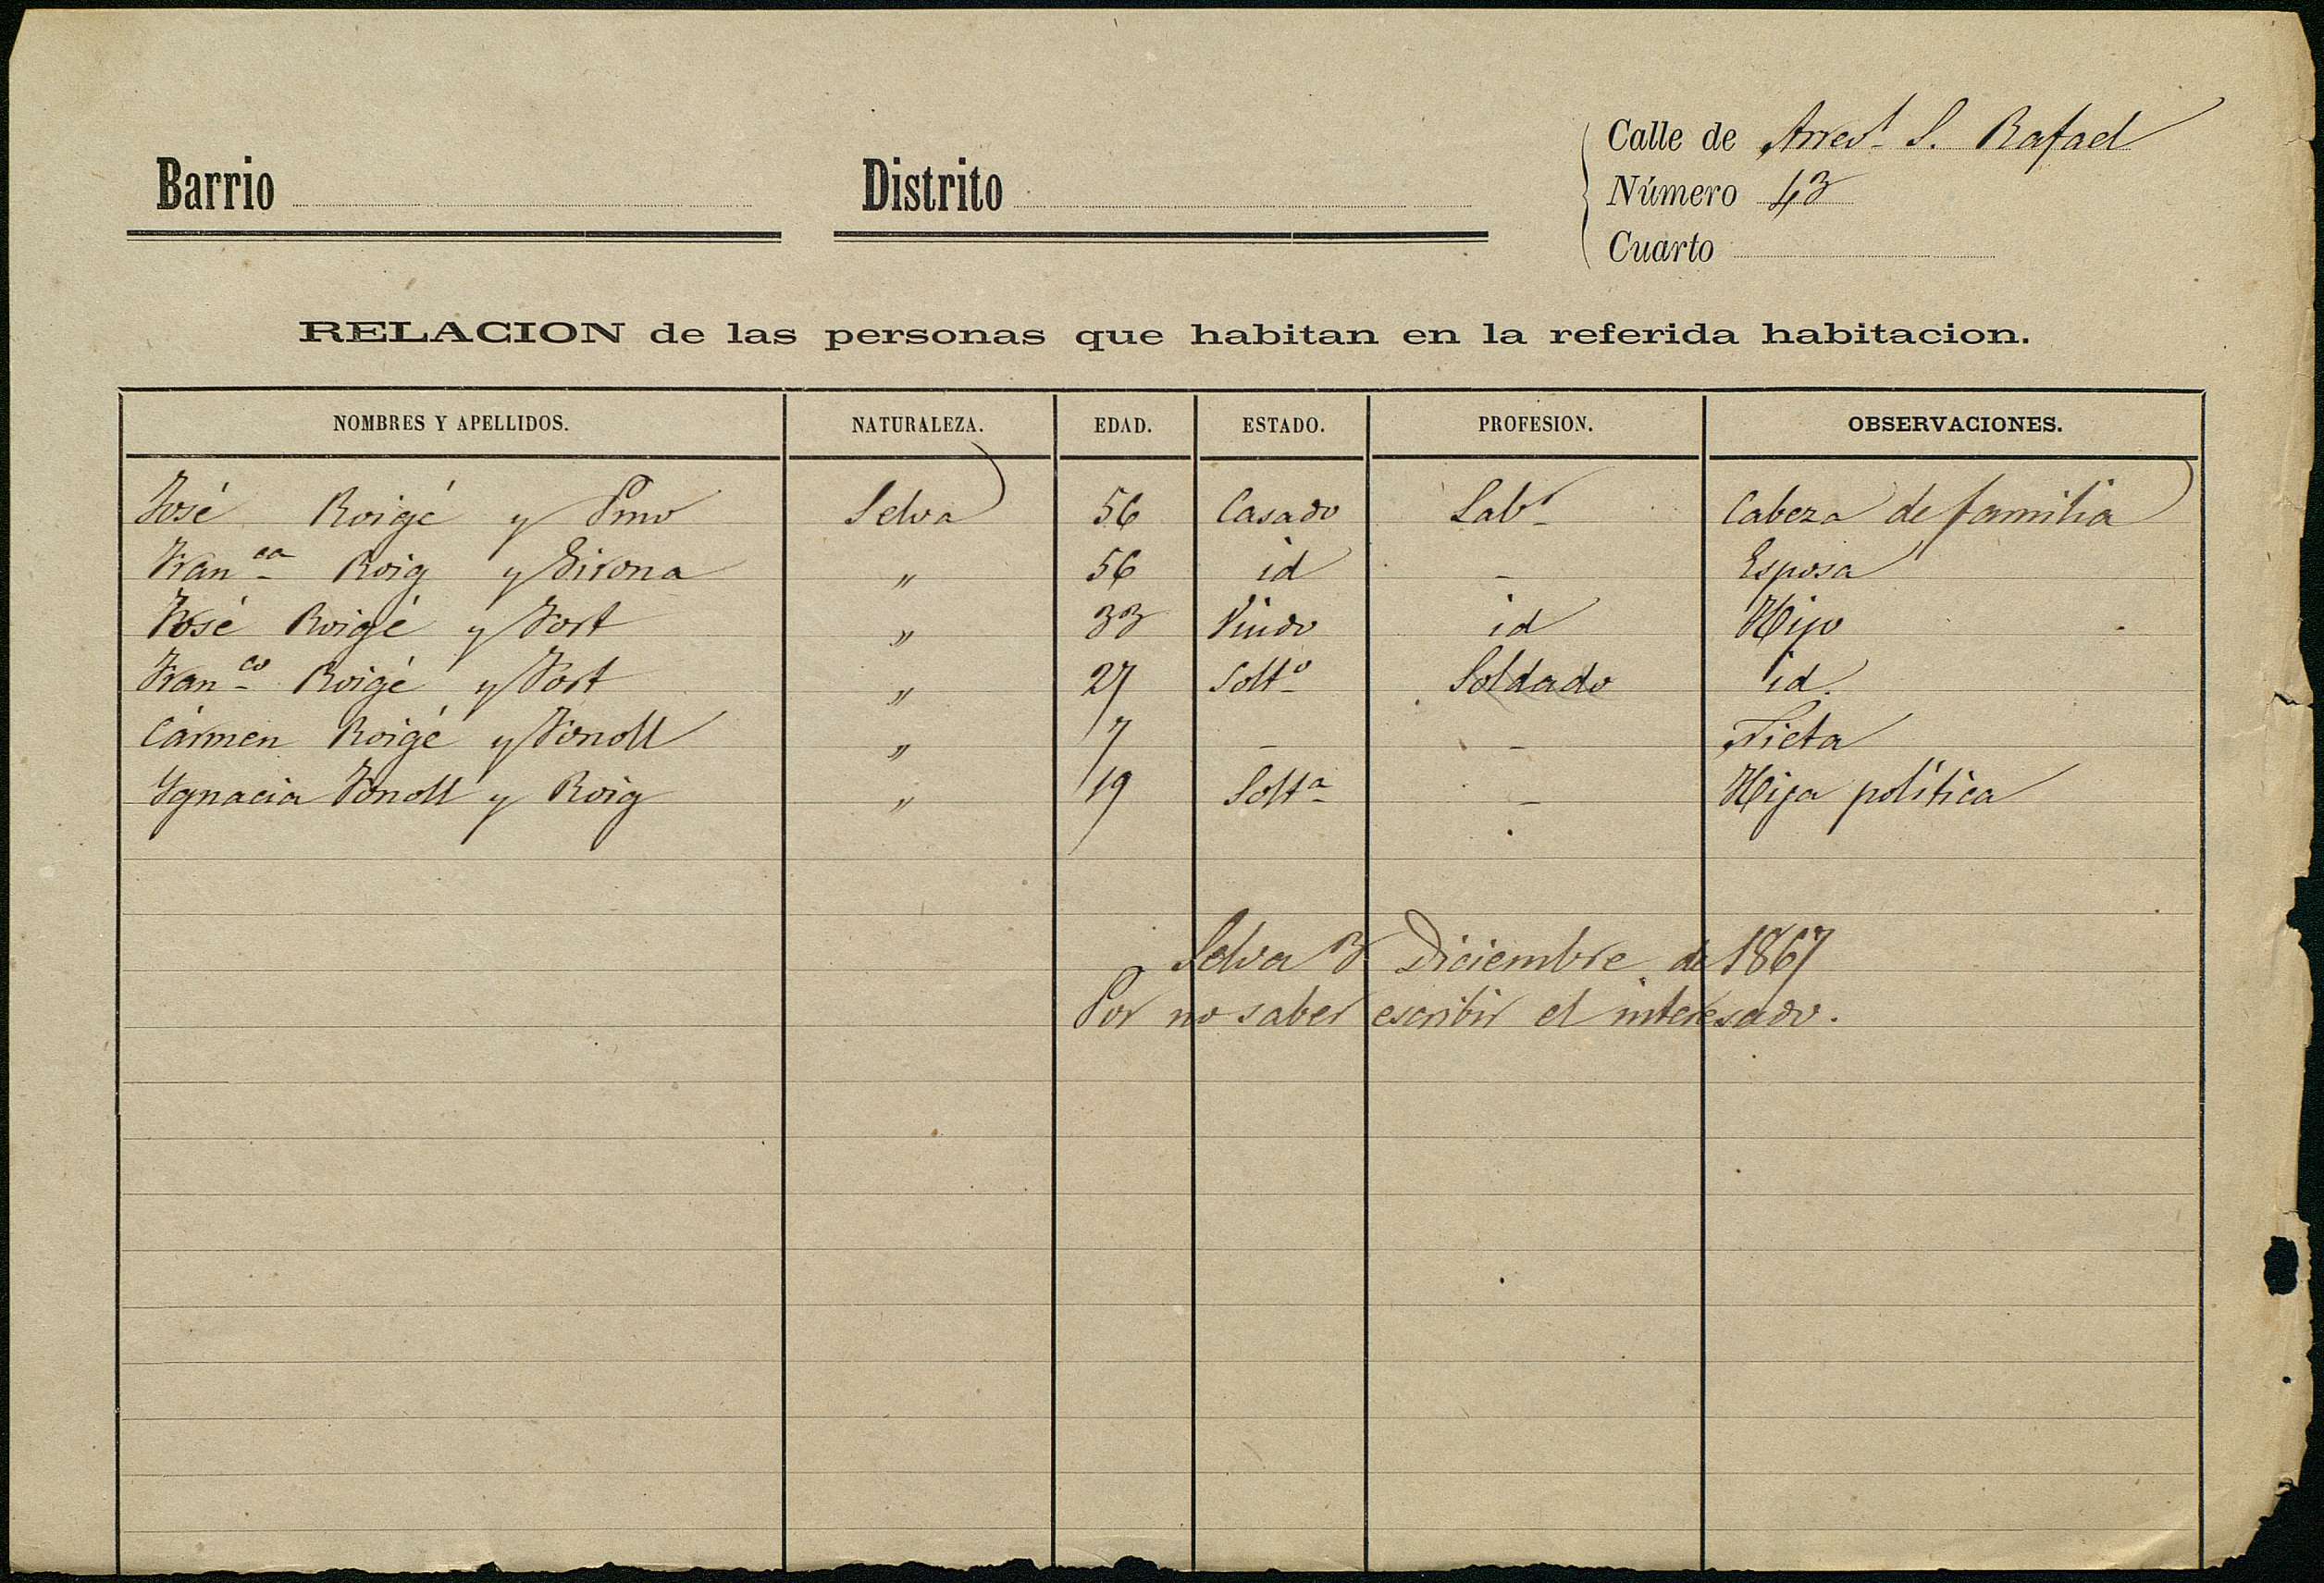 Calle de Arrev.^l S. Rafael
Barrio Distrito Número 43
Cuarto
RELACION de las personas que habitan en la referida habitacion.
NOMBRES Y APELLIDOS. NATURALEZA. EDAD. ESTADO. PROFESION. OBSERVACIONES.
José Roigé y Pino Selva 56 Casado Lab^r Cabeza de familia
Fran^ca Roig y Girona " 56 id - Esposa
José Roigé y Fort " 33 Viudo id Hijo
Fran^co Roigé y Fort " 27 Solt^o Soldado id.
Cármen Roigé y Fonoll " 7 - - Nieta
Ygnacia Fonoll y Roig " 19 Solt^a - Hija política
Selva 3 Diciembre de 1867
Por no saber escribir el interesado.